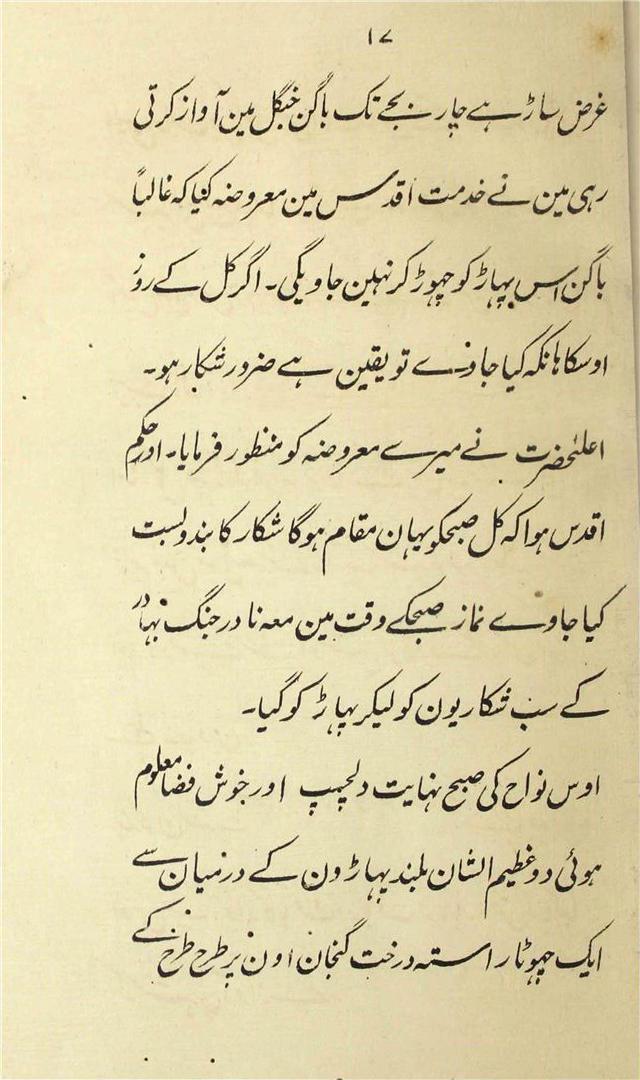 ۱۷
غرض ساڑہے چار بجے تک باگن جنگل مین آواز کرتی
رہی مین نے خدمت اقدس مین معروضہ کیا کہ غالباً
باگن اس پہاڑ کو چہوڑ کر نہین جاویگی۔ اگر کل کے روز
اوسکا ہانکہ کیا جاوے تو یقین ہے ضرور شکار ہو۔
اعلیٰحضرت نے میرے معروضہ کو منظور فرمایا۔ اور حکم
اقدس ہوا کہ کل صبحکو یہان مقام ہوگا شکار کا بندوبست
کیا جاوے نماز صبحکے وقت مین معہ نادر جنگ بہادر
کے سب شکاریون کو لیکر پہاڑ کو گیا۔
اوس نواح کی صبح نہایت دلچسپ اور خوش فضا معلوم
ہوئی دو عظیم الشان بلند پہاڑون کے درمیان سے
ایک چہوٹا راستہ درخت گنجان اون پر طرح طرح کے